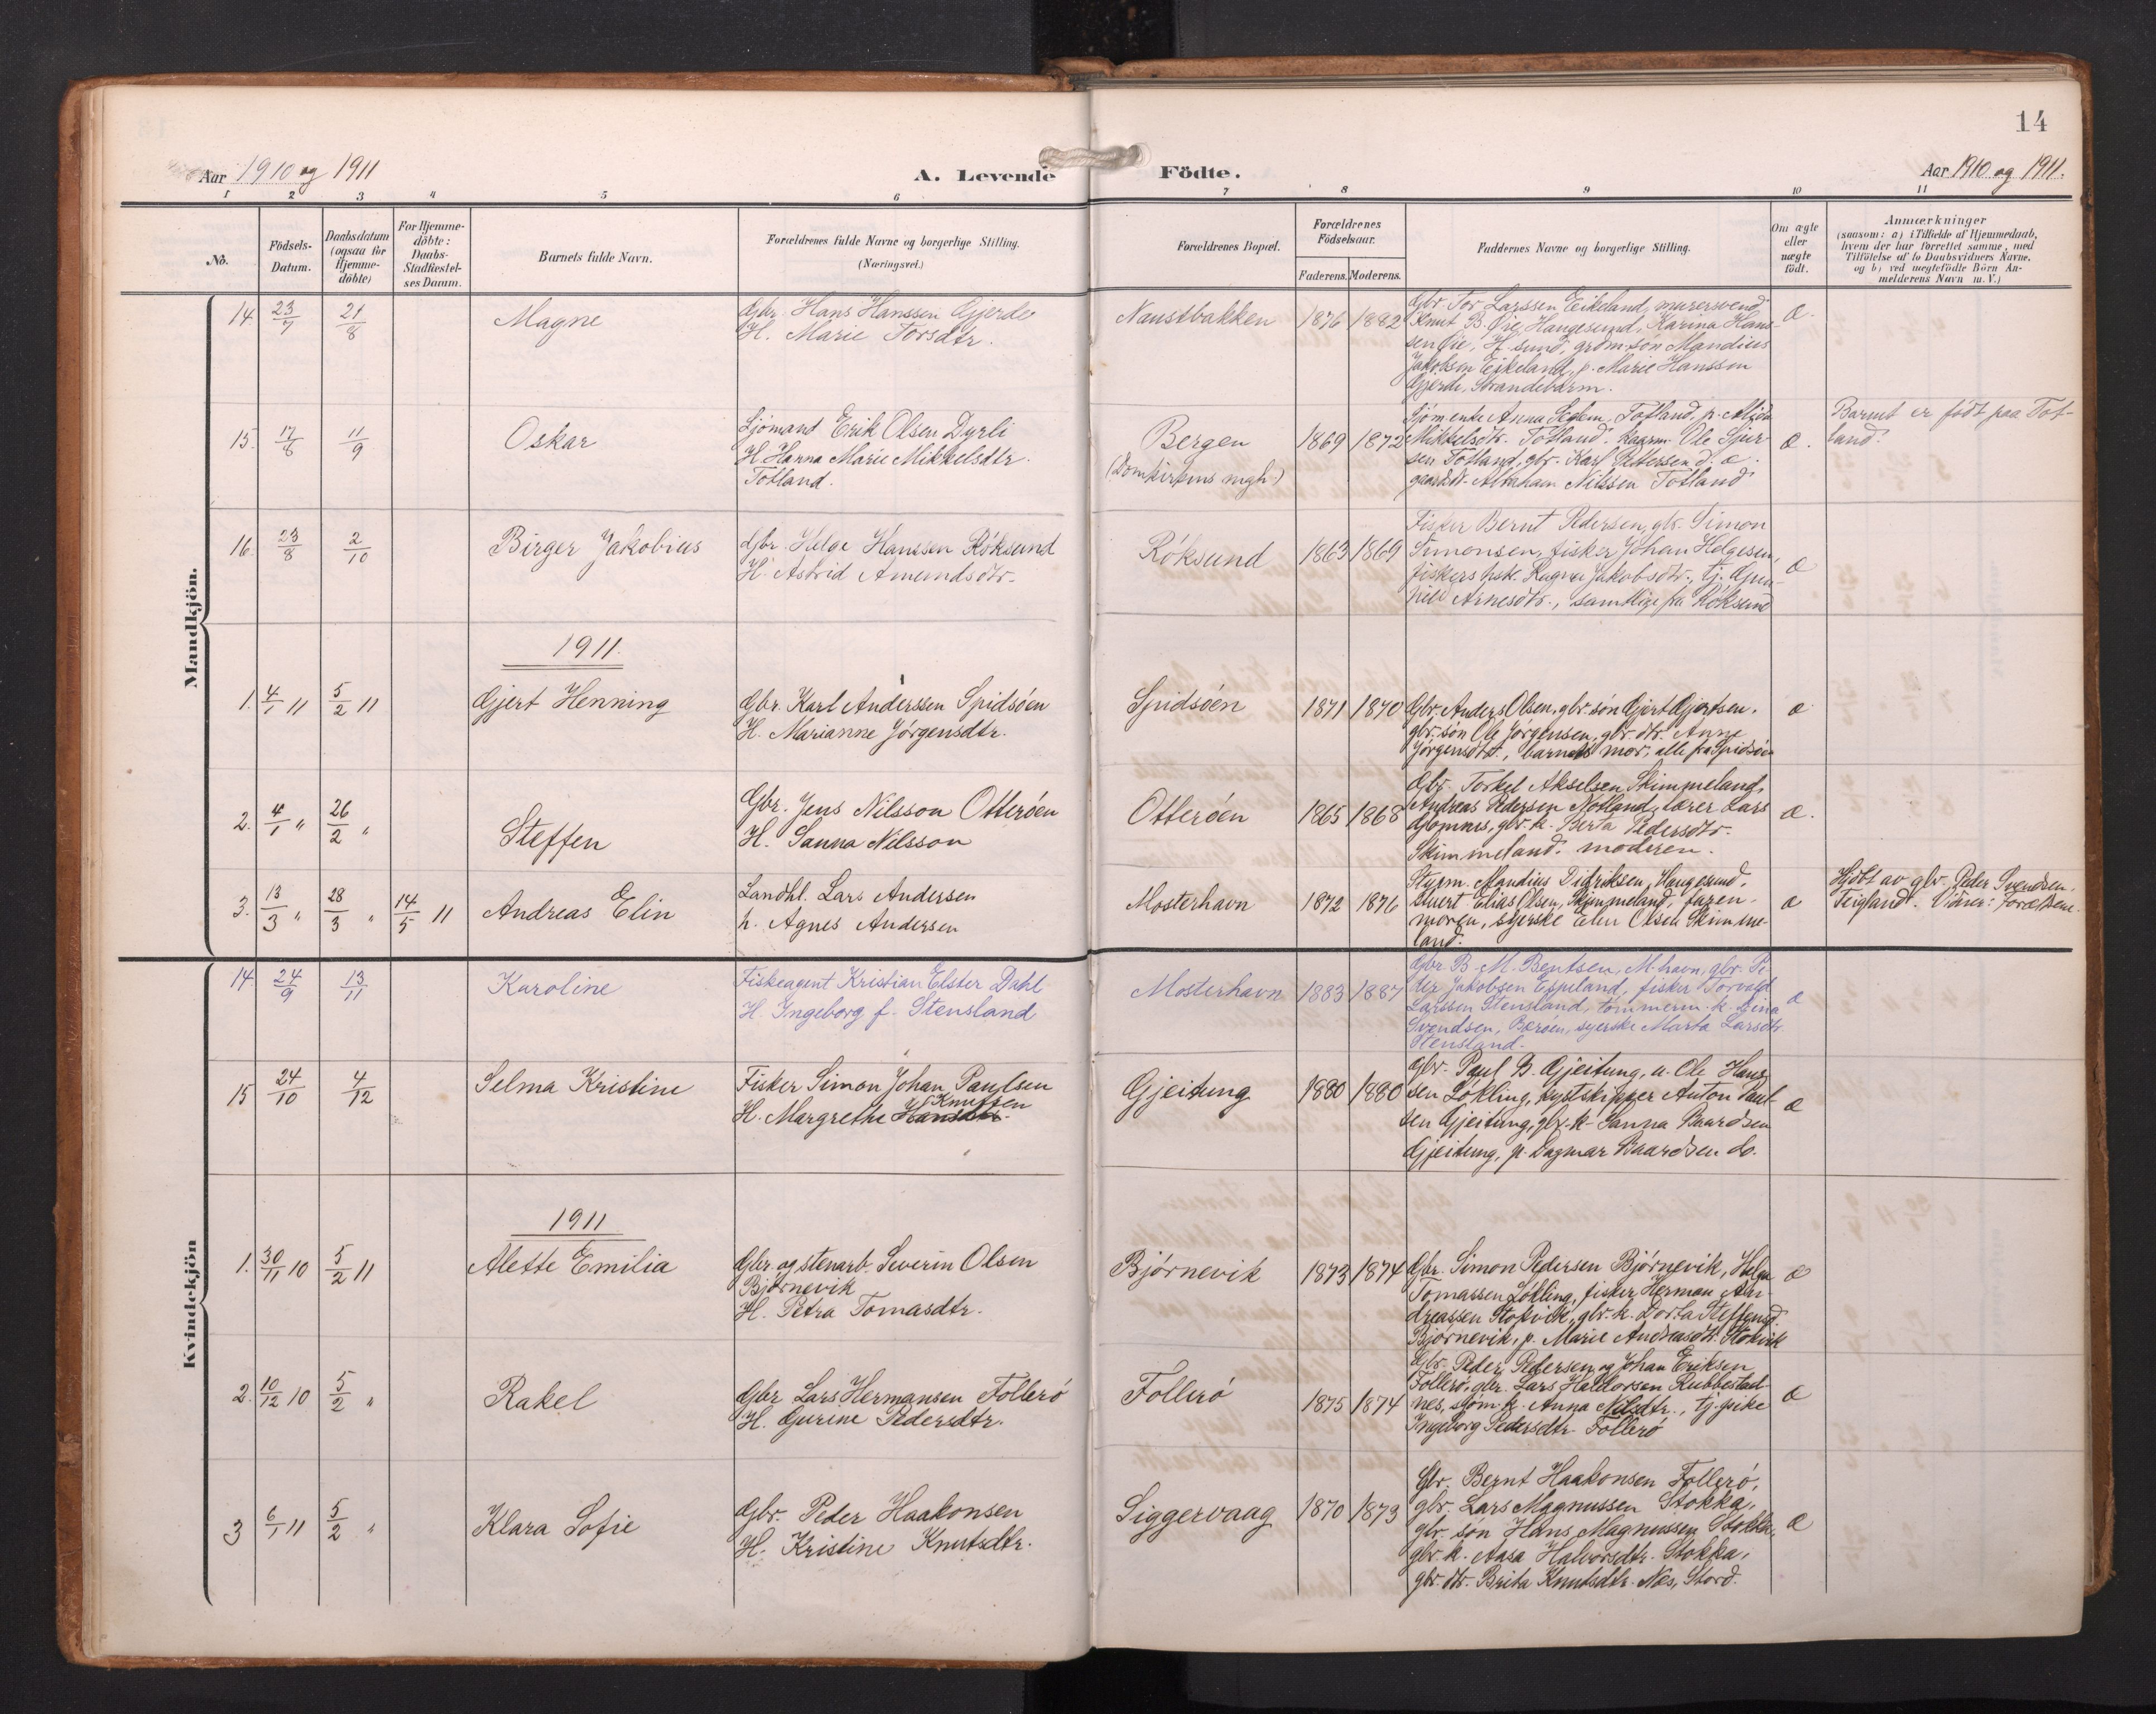 14
Aar 1910 og 1911
A. Levende Födte.
Aar 1910 og 1911.
1 2 3 4 5 6 7 8 9 10 11
No.
Födsels-Datum.
Daabsdatum (ogsaa for Hjemme-döbte)
For Hjemme-döbte: Daabs-Stadfæstel-ses Datum.
Barnets fulde Navn.
Forældrenes fulde Navne og borgerlige Stilling.
(Næringsvei.)
Forældrenes Bopæl.
Forældrenes Födselsaar.
Faderens. Moderens.
Faddernes Navne og borgerlige Stilling.
Om ægte eller uægte födt.
Anmærkninger
(saasom: a) i Tilfælde af Hjemmedaab,
hvem der har forrettet samme, med
Tilföielse af to Daabsvidners Navne,
og b) ved uægtefödte Börn An-
melderens Navn m. V.)
Mandkjön.
14 23/7 21/8 Magne
Gbr. Hans Hanssen Gjerde
H. Marie Torsdtr.
Naustbakken 1876 1882
Gbr. Tor Larssen Eikeland, murersvend
Knut B. Øie, Haugesund, Karina Hans-
sen Øie, H.sund, grom.søn Mandius
Jakobsen Eikeland, p. Marie Hanssen
Gjerde, Strandebarm.
æ.
15. 17/8 11/9 Oskar
Sjömand Erik Olsen Dyrli
H. Hanna Marie Mikkelsdtr.
Totland.
Bergen
(Domkirkens mgh.)
1869 1872
Sjöm.enke Anna Totland, p.
Mikkelsdtr. Totland. Ole Sjur-
sen Totland, gbr. Karl Pettersen d.
Abraham Nilssen Totland
æ.
Barnet er födt paa Tot-
land.
16. 23/8 2/10 Birger Jakobius
Gbr. Helge Hanssen Røksund
H. Astrid Amundsdtr.
Røksund 1863 1869
Fisker Bernt Pedersen, gbr. Simon
Simonsen, fisker Johan Helgesen,
fiskers hsk. Ragna Jakobsdtr., tj. Gun-
hild Arnesdtr., samtlige fra Röksund
æ
1911.
1. 4/1 11 5/2 11 Gjert Henning
Gbr. Karl Anderssen Spidsöen
H. Marianne Jörgensdtr.
Spidsöen 1871 1870
Gbr. Anders Olsen, gbr. sön Gjert Gjertsen,
gbr. sön Ole Jörgensen, gbr. dtr. Anne
Jörgensdtr., barnets mor, alle fra Spidsöen
æ
2. 4/1 " 26/2 " Steffen
Gbr. Jens Nilsson Otteröen
H. Sanna Nilsson
Otteröen 1865 1868
Gbr. Torkel Akselsen Skimmeland,
Andreas Pedersen Notland, lærer Lars
gbr. k. Berta Pedersdtr.
Skimmeland. moderen.
æ.
3. 13/3 " 28/3 " 14/5 11 Andreas Elin
Landhl. Lars Andersen
h. Agnes Andersen
Mosterhavn 1872 1876
Styrm. Mandius Didriksen, Haugesund,
Elias Olsen, Skimmeland, faren,
moren, syerske Elen Olsen Skimme-
land.
æ
Hjdbt av gbr. Peder Svendsen,
Teigland. Vidner: Forældrene.
Kvindekjön
14 24/9 13/11 Karoline
Fiskeagent Kristian Elster Dahl
H. Ingeborg f. Stensland
Mosterhavn 1883 1887
Gbr. B. M. Bentsen, M.havn, gbr. Pe-
der Jakobsen Espeland, fisker Torvald
Larssen Stensland, tömmerm. k. Lina
Svendsen, Boröen, syerske Marta Larsdtr.
Stensland.
æ
15 24/10 4/12 Selma Kristine
Fisker Simon Johan Paulsen
Knutsen
H. Margrethe Hansdtr.
Gjeitung 1880 1880
Gbr. Paul B. Gjeitung, u. Ole Hans-
sen Løkling, kystskipper Anton Paul-
sen Gjeitung, gbr. k. Sanna Baardsen
Gjeitung, p. Dagmar Baardsen do.
æ
1911
1. 30/11 10 5/2 11 Alette Emilia
Gbr. og stenarb. Severin Olsen
Bjørnevik
H. Petra Tomasdtr.
Bjørnevik 1873 1874
Gbr. Simon Pedersen Bjørnevik, Helge
Tomassen Løkling, fisker Herman An-
dreassen Stokvik, gbr. k. Dorta Steffensd.
Bjørnevik, p. Marie Andreasdtr. Stokvik
æ
2. 10/12 10 5/2 " Rakel
Gbr. Lars Hermansen Follerö
H. Gurine Pedersdtr.
Follerö 1875 1874
Gbr. Peder Pedersen og Johan Eriksen
Follerö, gbr. Lars Haldorsen Rubbestad-
nes, sjöm. k. Anna Nilsdtr., tj. pike
Ingeborg Pedersdtr. Follerö
æ
3 6/1 11 5/2 " Klara Sofie
Gbr. Peder Haakonsen
H. Kristine Knutsdtr.
Siggervaag 1870 1873
Gbr. Bernt Haakonsen Follerö,
gbr. Lars Magnussen Stokka,
gbr. søn Hans Magnussen Stokka,
gbr. k. Aasa Halvorsdtr. Stokka,
gbr. dtr. Brita Knutsdtr. Nes, Stord.
æ